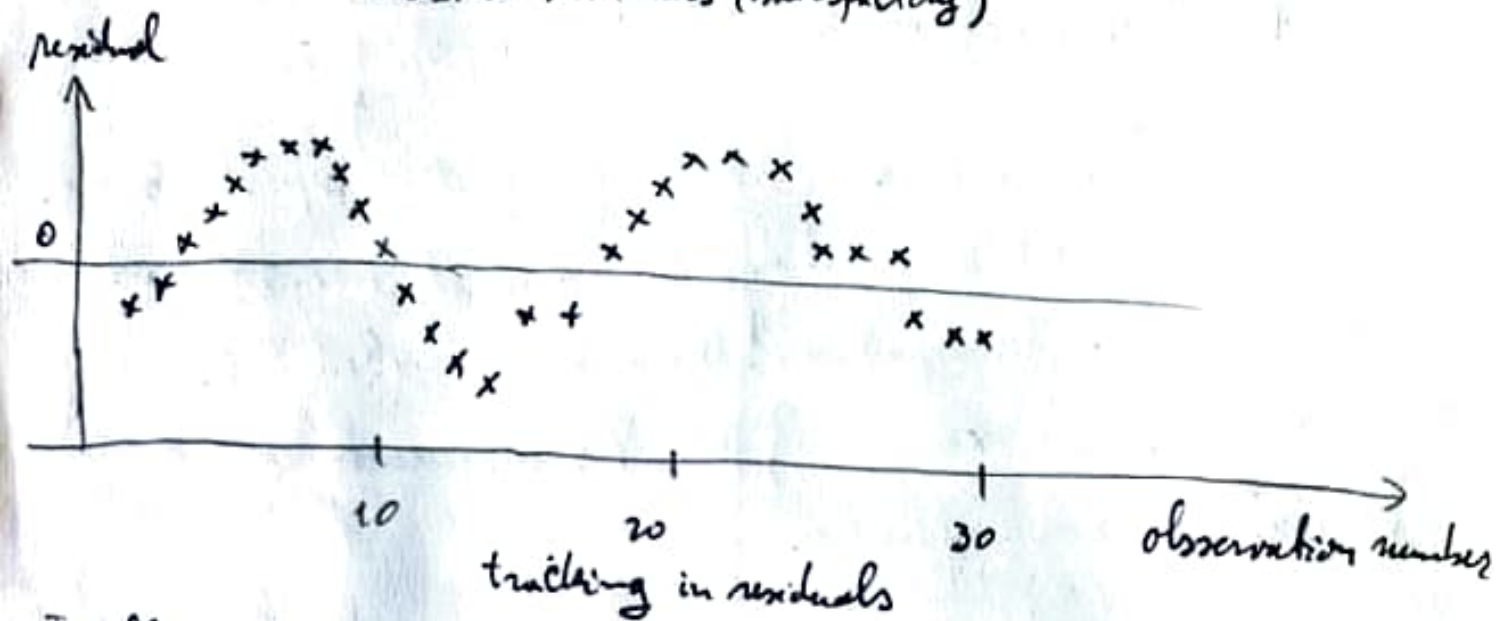 residual
0
10
20
30
observation number
tracking in residuals